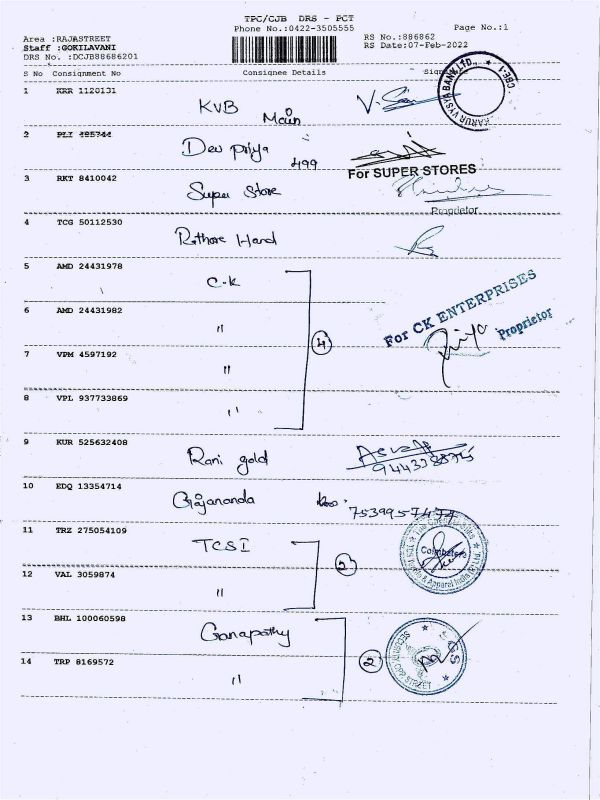 TPC/CJB DRS - PCT
Phone No.:0422-3505555
Page No.:1
Area :RAJASTREET
Staff :GOKILAVANI
DRS No. :DCJB88686201
RS No.:886862
RS Date:07-Feb-2022
S No Consignment No Consignee Details Sign
1 KRR 1120131 KVB Main
KARUR VYSYA BANK LTD., * CBE-1
2 PLI 485744 Devpriya 499
3 RKT 8410042 Super Store
For SUPER STORES
Proprietor
4 TCG 50112530 Rathore Hard
5 AMD 24431978 C.K
6 AMD 24431982 "
7 VPM 4597192 "
8 VPL 937733869 "
4
For CK ENTERPRISES
Priya
Proprietor
9 KUR 525632408 Rani gold
10 EDQ 13354714 Gajananda
11 TRZ 275054109 TCSI
12 VAL 3059874 "
2
Coimbatore
& Apparel India (P) Ltd
13 BHL 100060598 Ganapathy
14 TRP 8169572 "
2
SECURITY
OPP STREET